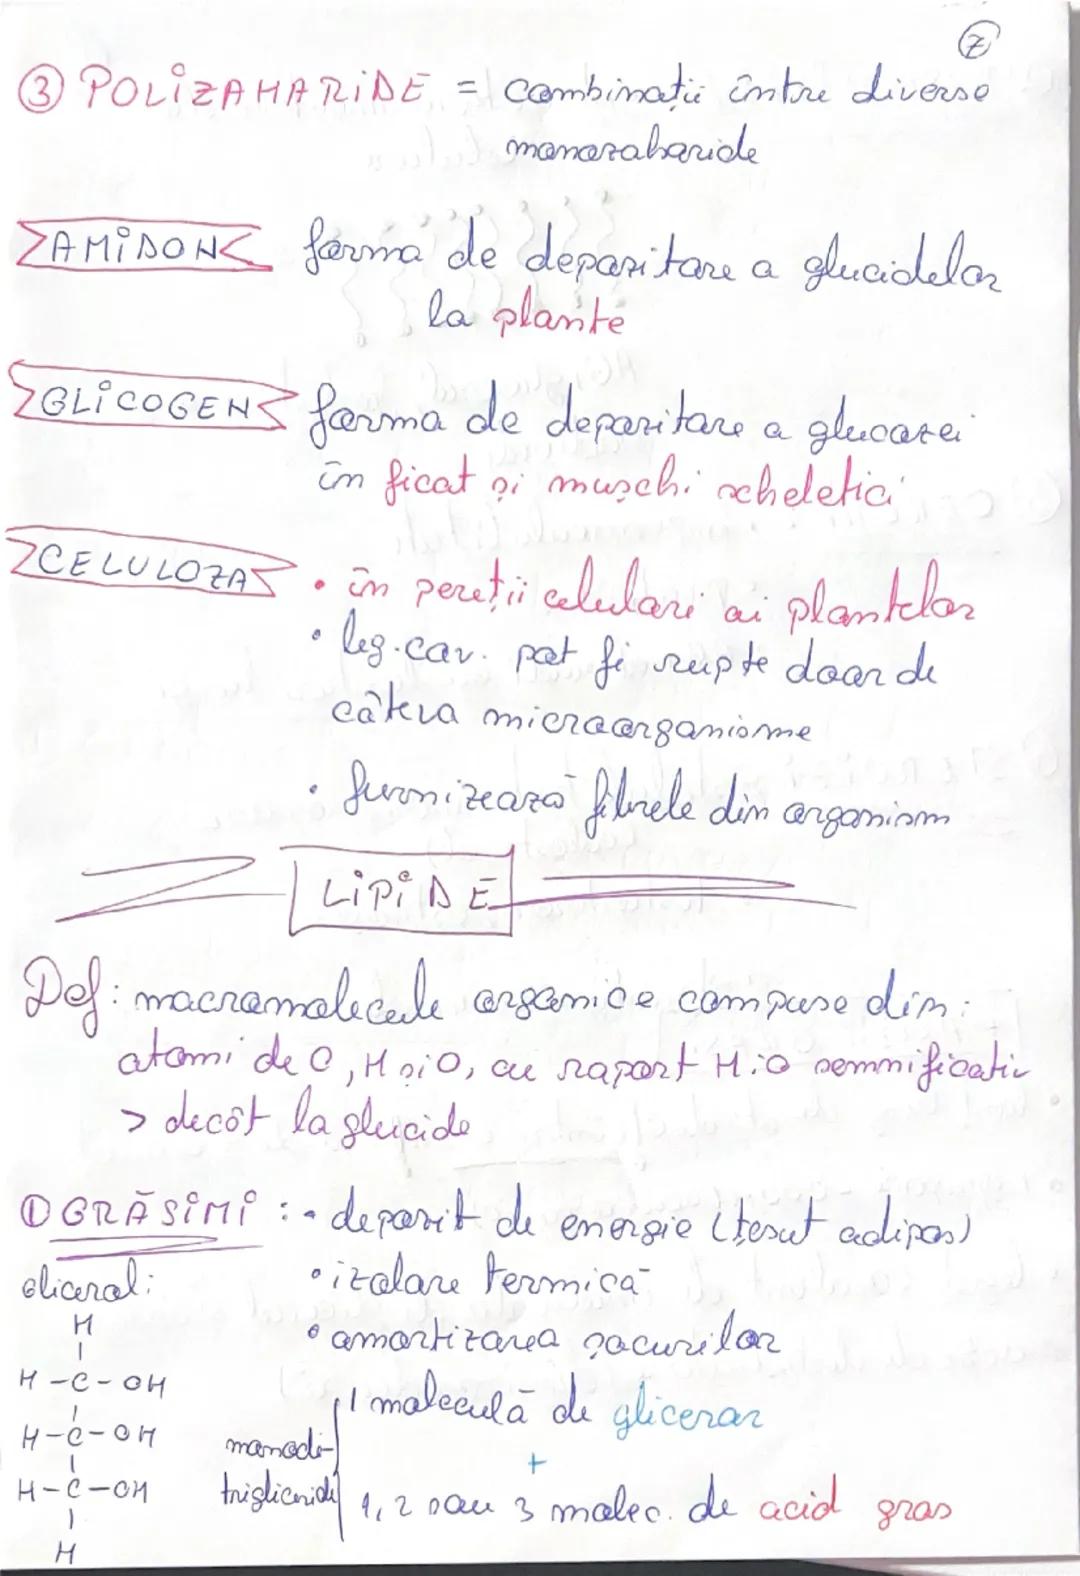 7
③ POLIZAHARIDE = combinații între diverse
monozaharide
AMIDON forma de depozitare a glucidelor
la plante
GLICOGEN forma de depozitare a glucozei
în ficat și mușchi scheletici
CELULOZA • în pereții celulari ai plantelor
• leg. cov. pot fi rupte doar de
câteva microorganisme
• furnizează fibrele din organism
LIPIDE
Def: macromolecule organice compuse din:
atomi de C, H și O, cu raport H:O semnificativ
> decât la glucide
① GRĂSIMI : • depozit de energie (țesut adipos)
glicerol: • izolare termică
• amortizarea șocurilor
H
H-C-OH
H-C-OH
H-C-OH
H
monodi-
trigliceride
1 moleculă de glicerol
+
1, 2 sau 3 molec. de acid gras